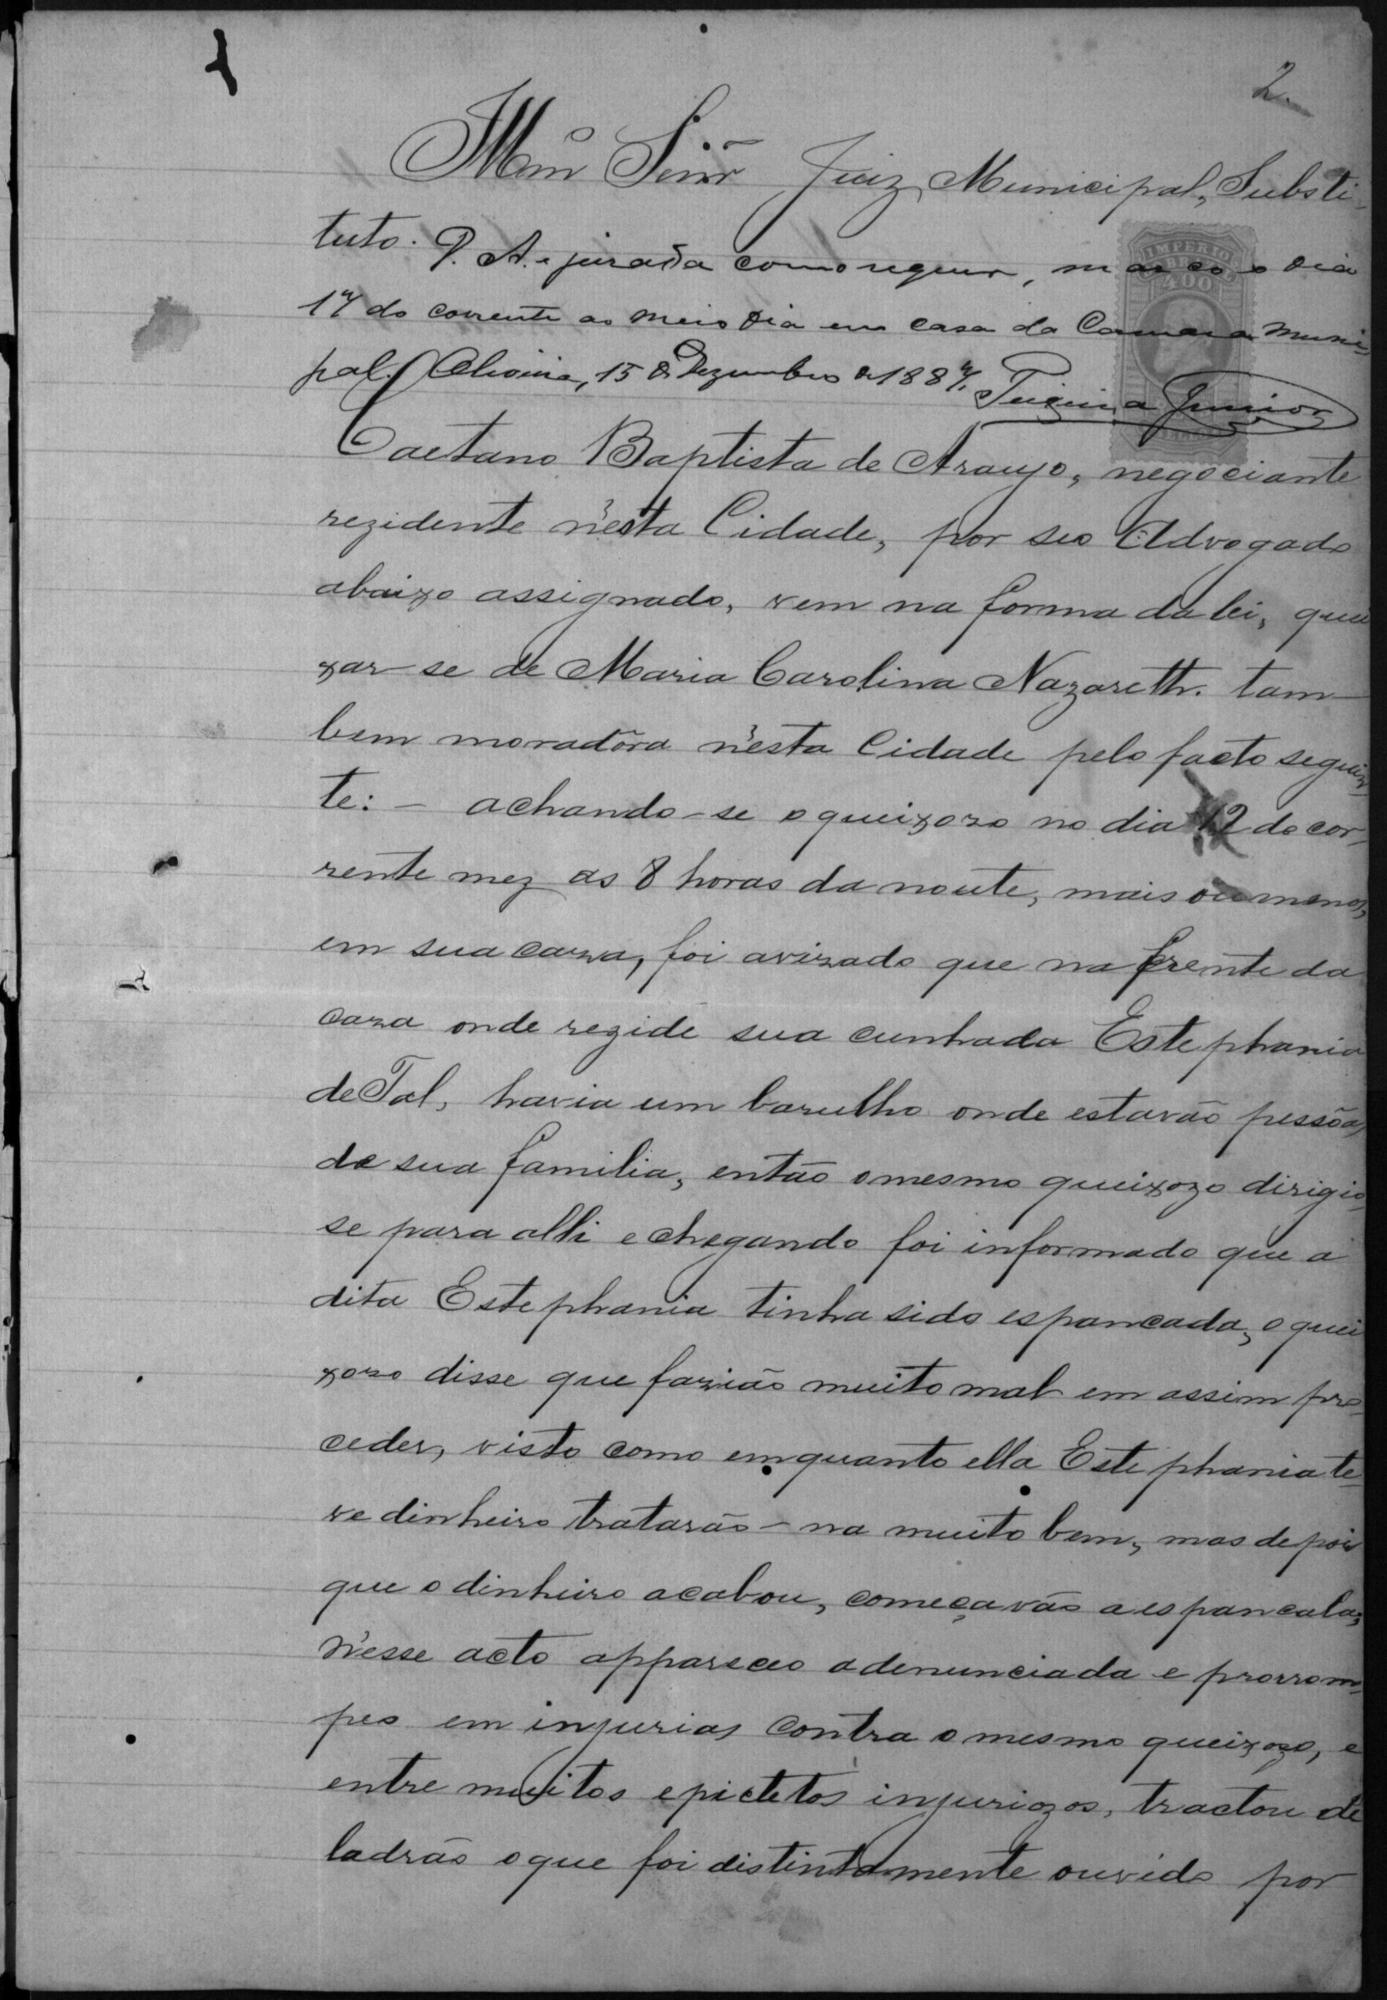 2.
Illmº Senr Juiz Municipal, Substi-
tuto.
P. A. e jurada como requer, marco o dia
17 do corrente ao meio dia em casa da Camara Muni-
pal. Oliveira, 15 de Dezembro de 1887. Teixeira Junior
IMPERIO
400
Caetano Baptista de Araujo, negociante
rezidente n'esta Cidade, por seo Advogado
abaixo assignado, vem na forma da lei, quei
xar-se de Maria Carolina Nazareth. tam-
bem moradôra n'esta Cidade pelo facto seguin-
te: - achando-se o queixozo no dia 12 do cor-
rente mez as 8 horas da noute, mais ou menos,
em sua caza, foi avizado que na frente da
caza onde rezide sua cunhada Estephania
de Tal, havia um barulho onde estavão pessôas
de sua familia, então o mesmo queixozo dirigio-
se para alli e chegando foi informado que a
dita Estephania tinha sido espancada, o quei
xozo disse que fazião muito mal em assim pro-
ceder, visto como emquanto ella Estephania te-
ve dinheiro tratarão-na muito bem, mas depois
que o dinheiro acabou, começavão a espancala,
N'esse acto appareceo a denunciada e prorrom-
peo em injurias contra o mesmo queixozo, e
entre muitos epictetos injuriozos, tractou de
ladrão o que foi distintamente ouvido por